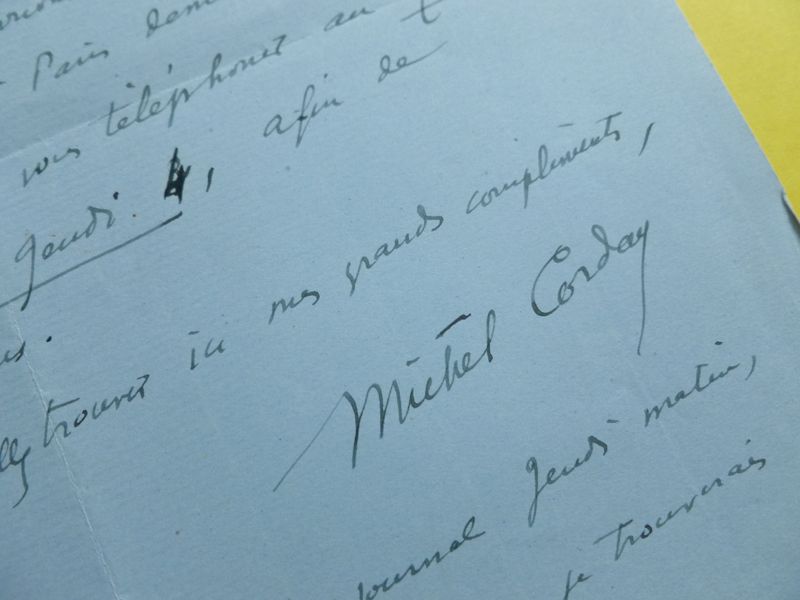 Paris
vous téléphoner au
jeudi 4, afin de
trouver ici mes grands compliments,
Michel Corday
journal jeudi matin,
je trouverais